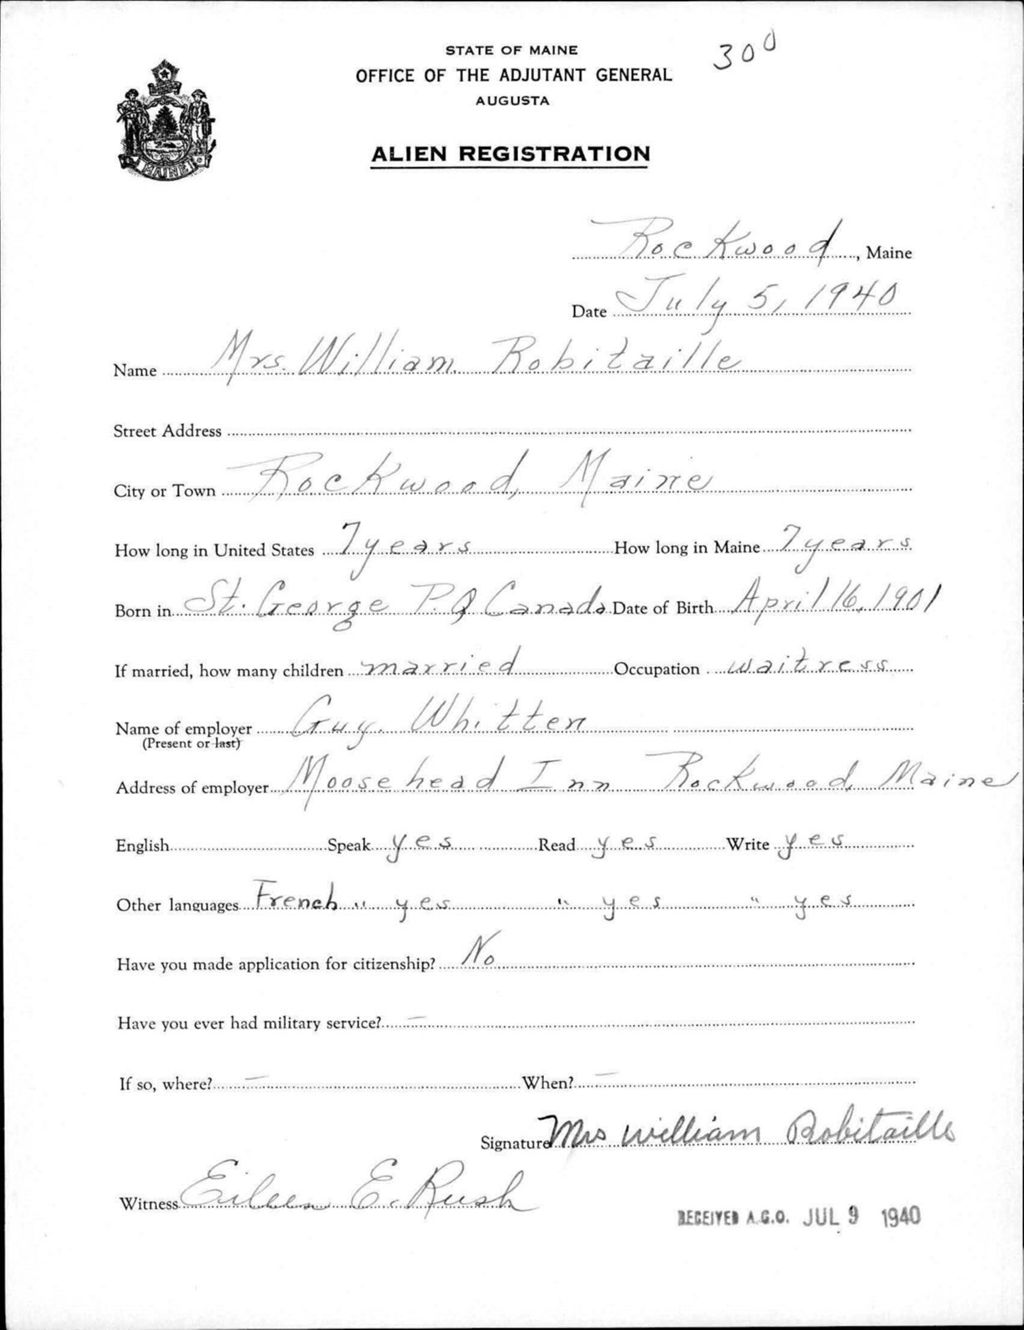 STATE OF MAINE
OFFICE OF THE ADJUTANT GENERAL
AUGUSTA
300
ALIEN REGISTRATION
MAINE
Rockwood, Maine
Date July 5, 1940
Name Mrs. William Robitaille
Street Address
City or Town Rockwood, Maine
How long in United States 7 years How long in Maine 7 years
Born in St. George P.Q Canada Date of Birth April 16, 1901
If married, how many children married Occupation waitress
Name of employer Guy. Whitten
(Present or last)
Address of employer Moosehead Inn Rockwood, Maine
English Speak yes Read yes Write yes
Other languages French " yes " yes " yes
Have you made application for citizenship? No
Have you ever had military service? —
If so, where? — When? —
Signature Mrs William Robitaille
Witness Eileen E. Rush
RECEIVED A.G.O. JUL 9 1940